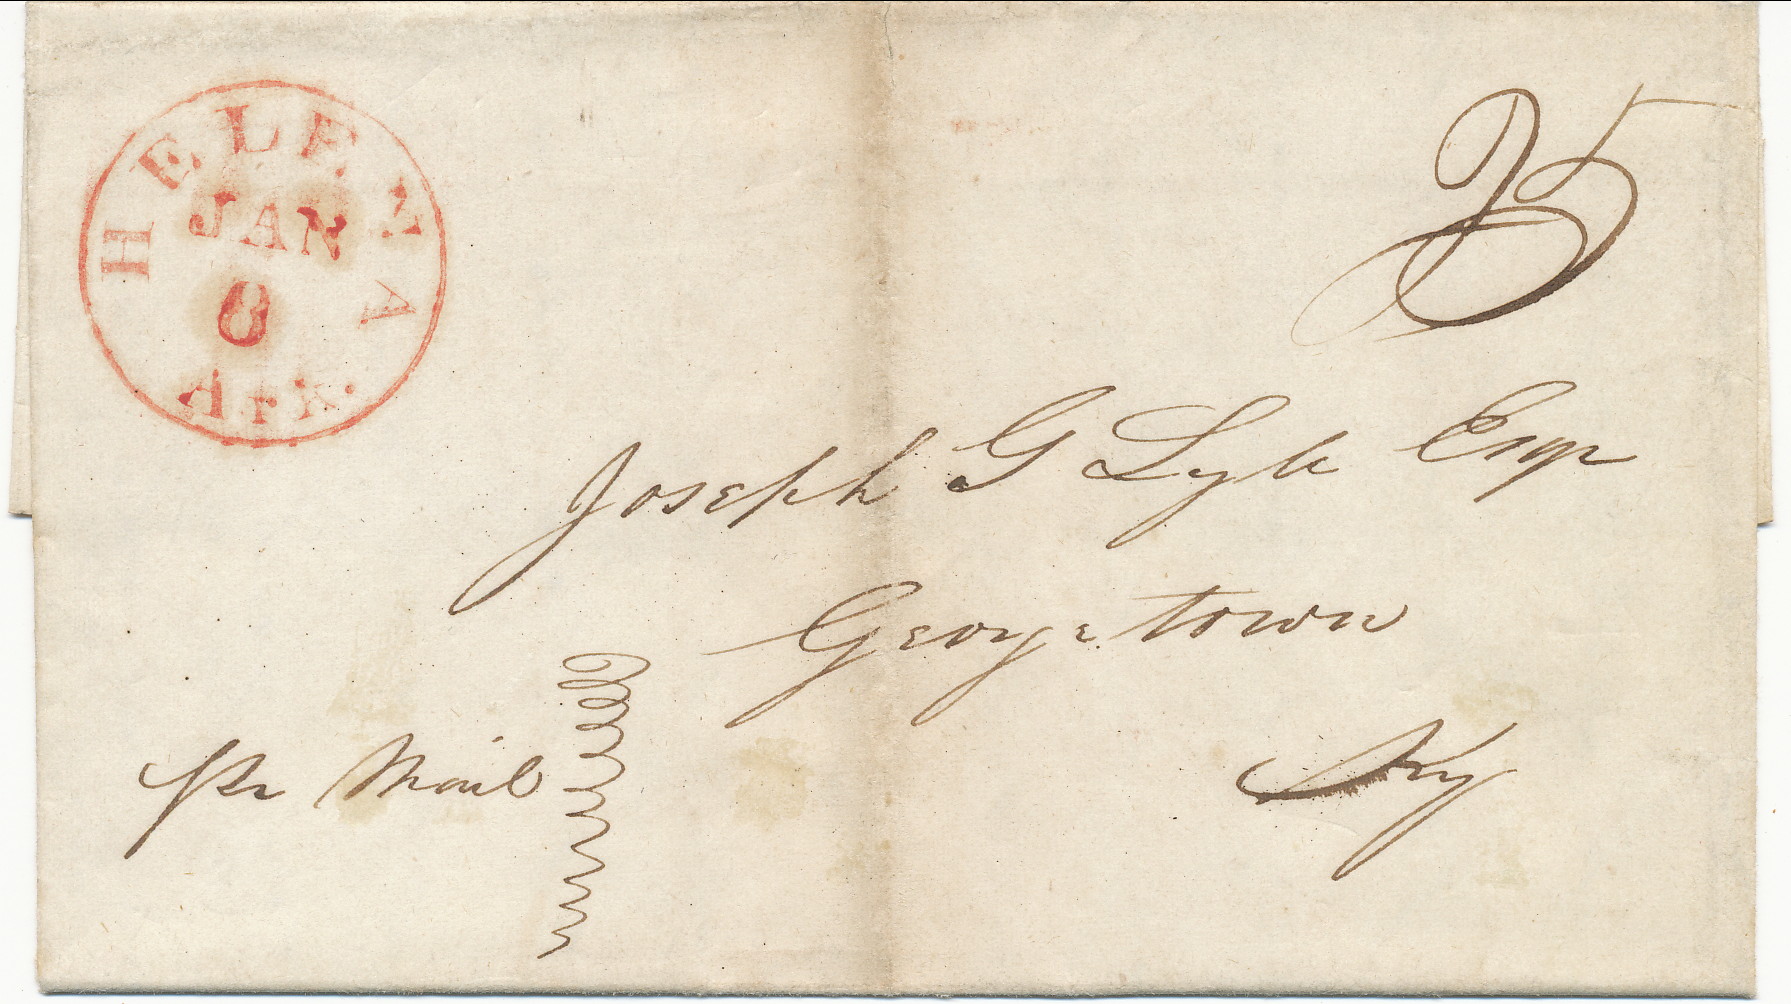 HELENA
JAN
8
Ark.
25
Joseph G Lyle Esqr
Georgetown
Ky
pr Mail